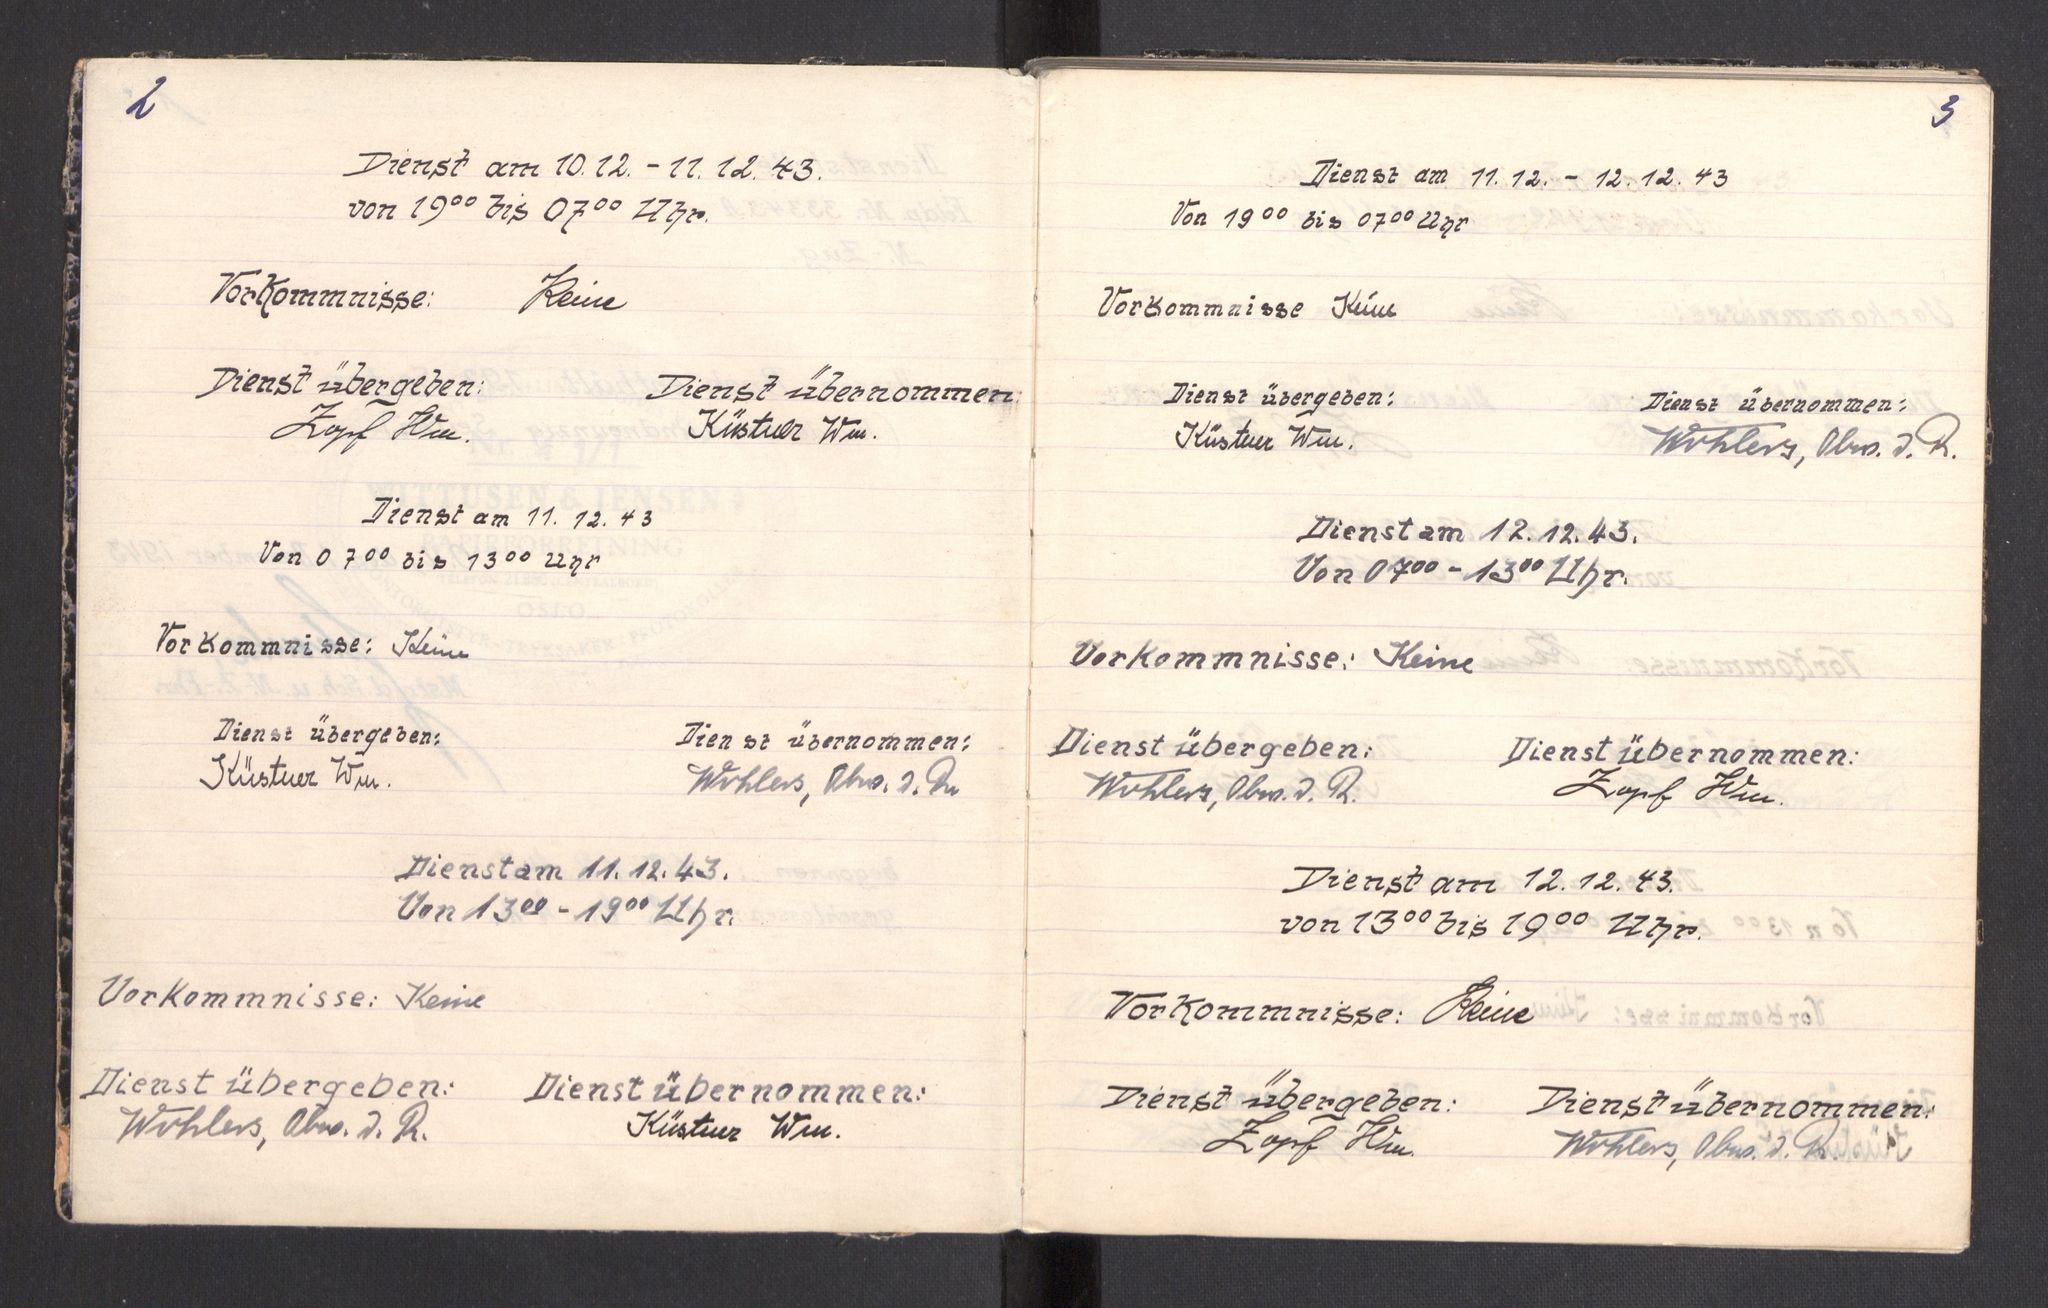 2
Dienst am 10.12. - 11.12.43.
von 19⁰⁰ bis 07⁰⁰ Uhr.
Vorkommnisse: Keine
Dienst übergeben: Dienst übernommen:
Zopf Wm. Küstner Wm.
Dienst am 11.12.43
Von 07⁰⁰ bis 13⁰⁰ Uhr
Vorkommnisse: Keine
Dienst übergeben: Dienst übernommen:
Küstner Wm. Wohlers, Obw. d. R.
Dienst am 11.12.43.
Von 13⁰⁰ - 19⁰⁰ Uhr.
Vorkommnisse: Keine
Dienst übergeben: Dienst übernommen:
Wohlers, Obw. d. R. Küstner Wm.
3
Dienst am 11.12. - 12.12.43
Von 19⁰⁰ bis 07⁰⁰ Uhr
Vorkommnisse Keine
Dienst übergeben: Dienst übernommen:
Küstner Wm. Wohlers, Obw. d. R.
Dienst am 12.12.43.
Von 07⁰⁰ - 13⁰⁰ Uhr.
Vorkommnisse: Keine
Dienst übergeben: Dienst übernommen:
Wohlers, Obw. d. R. Zopf Wm.
Dienst am 12.12.43.
von 13⁰⁰ bis 19⁰⁰ Uhr.
Vorkommnisse: Keine
Dienst übergeben: Dienst übernommen:
Zopf Wm. Wohlers, Obw. d. R.